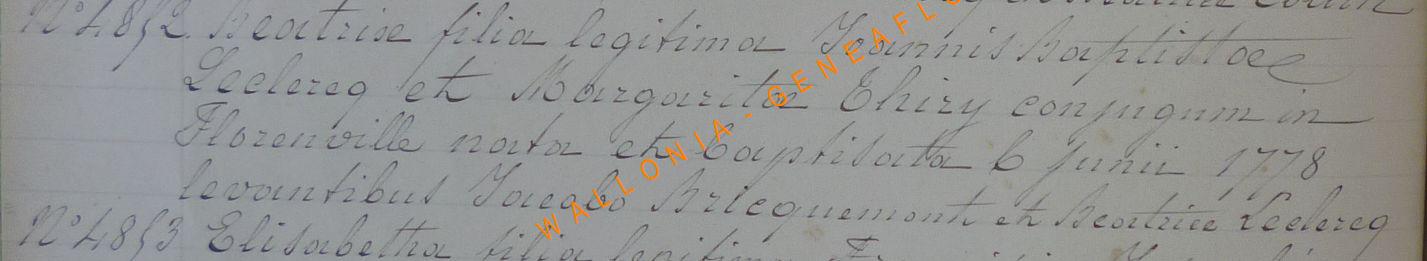 N° 4852. Beatrix filia legitima Joannis Baptistae
Leclercq et Margarita Thiry conjugum in
Florenville nata et baptisata 6 junii 1778
levantibus Jacobo Bricquemont et Beatrice Leclercq
N° 4853 Elisabetha filia legitima
WALLONIA - GENEAFL